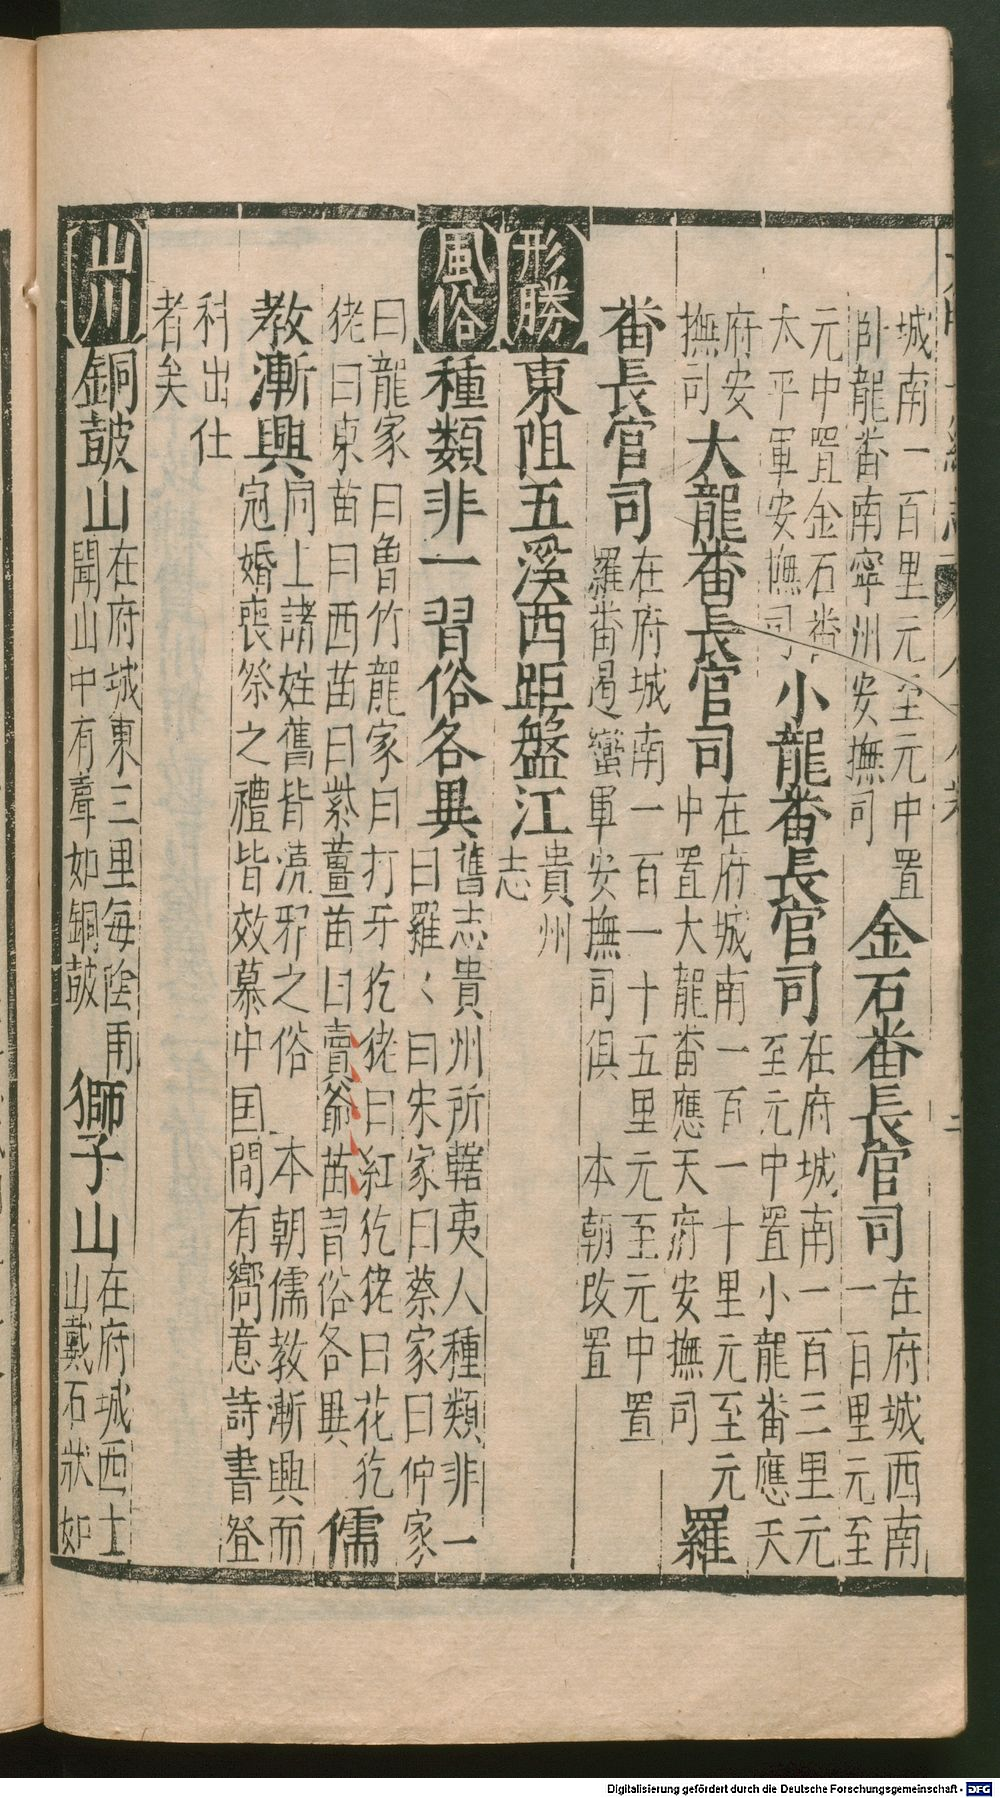 城南一百里元至元中置
臥龍畨南寧州安撫司
金石畨長官司
在府城西南
一百里元至
元中置金石畨
太平軍安撫司
小龍畨長官司
在府城南一百三里元
至元中置小龍畨應天
府安
撫司
大龍畨長官司
在府城南一百一十里元至元
中置大龍畨應天府安撫司
羅
畨長官司
在府城南一百一十五里元至元中置
羅畨遏蠻軍安撫司俱 本朝改置
形勝
東阻五溪西距盤江
貴州
志
風俗
種類非一習俗各異
舊志貴州所轄夷人種類非一
曰羅〻曰宋家曰蔡家曰仲家
曰龍家曰曾竹龍家曰打牙犵狫曰紅犵狫曰花犵
狫曰東苗曰西苗曰紫薑苗曰賣爺苗習俗各異
儒
教漸興
同上諸姓舊皆澆邪之俗 本朝儒教漸興而
冠婚喪祭之禮皆效慕中国間有嚮意詩書登
科出仕
者矣
山川
銅鼓山
在府城東三里每陰雨
聞山中有聲如銅鼓
獅子山
在府城西土
山戴石狀如
Digitalisierung gefördert durch die Deutsche Forschungsgemeinschaft - DFG